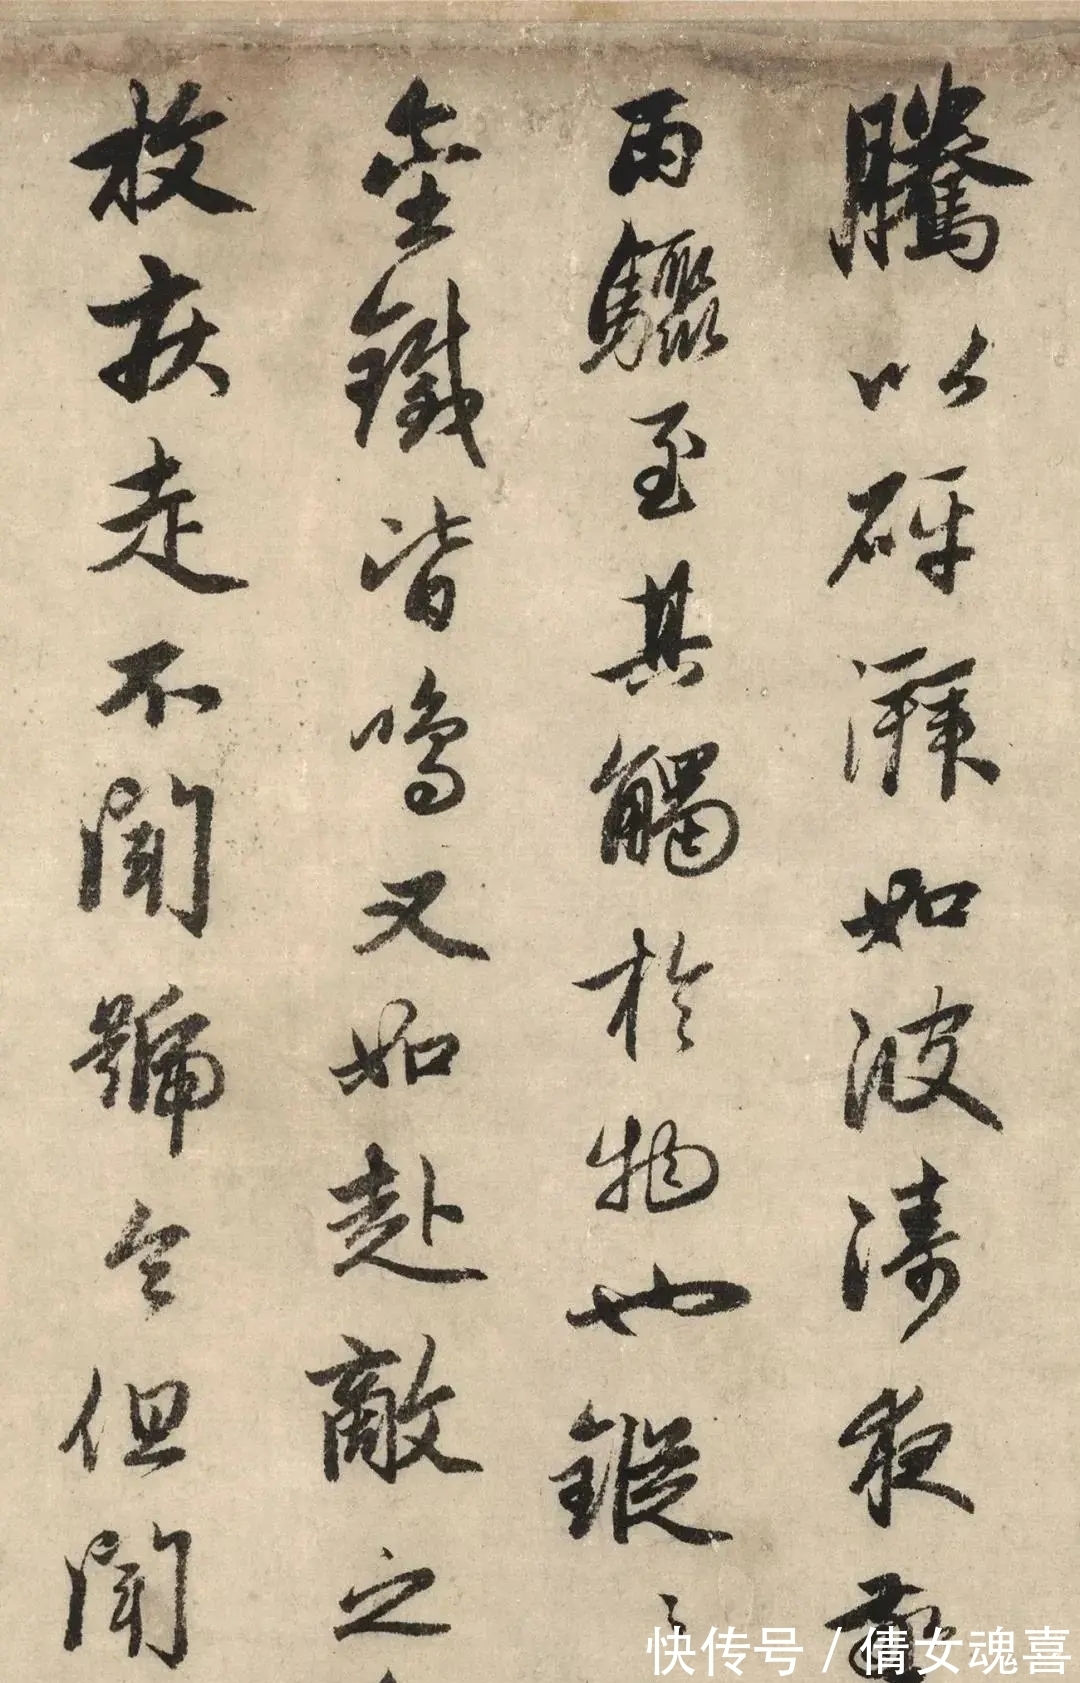 騰以砰湃如波濤夜
雨驟至其觸於物也鏦〻
金鐵皆鳴又如赴敵之
枚疾走不聞號令但聞
快传号 / 倩女魂喜